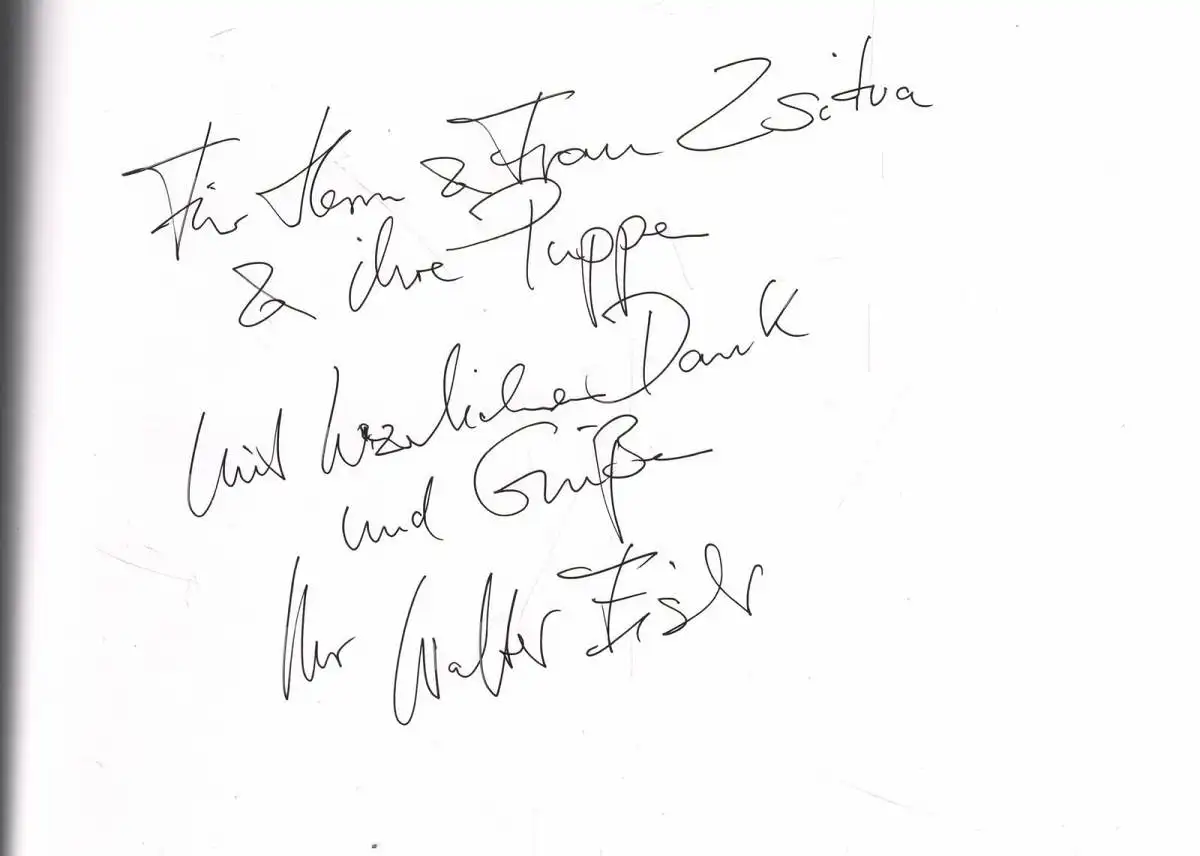 Für Herrn & Frau Zsitva
& ihre Puppe
mit herzlichem Dank
und Grüßen
Ihr Walter